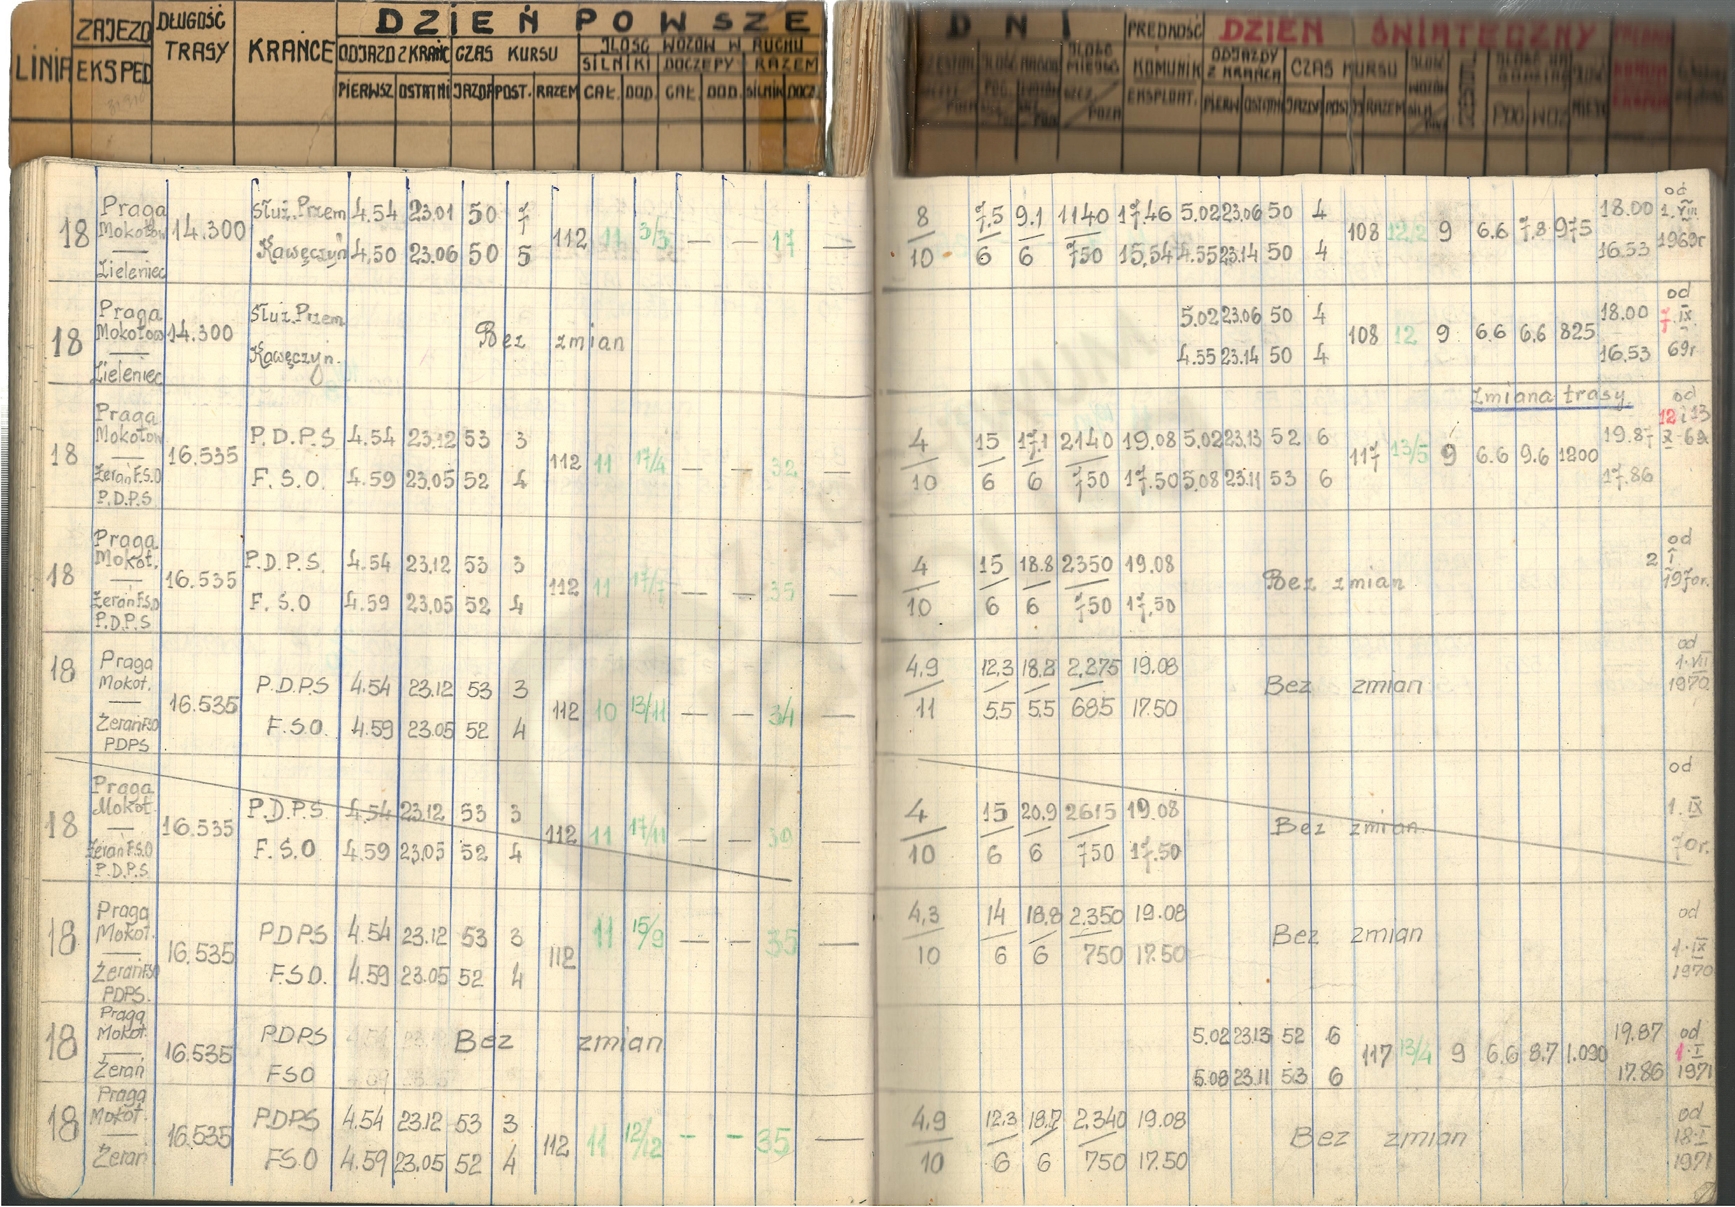 LINIA ZAJEZD EKSPED DŁUGOŚĆ TRASY KRAŃCE DZIEŃ POWSZE
ODJAZD Z KRAŃC CZAS KURSU ILOŚĆ WOZÓW W RUCHU
SILNIKI DOCZEPY RAZEM
PIERWSZ. OSTATNI JAZDA POST. RAZEM CAŁ. DOD. CAŁ. DOD. SILNIK DOCZ.
DNI PRĘDKOŚĆ KOMUNIK EKSPLOAT. DZIEŃ ŚWIĄTECZNY
ODJAZDY Z KRAŃCA CZAS KURSU
18 Praga Mokotów — Zieleniec 14.300
Służ.Przem 4.54 23.01 50 7
Kawęczyn 4.50 23.06 50 5
112 11 3/3 — — 17 —
8/10 7.5/6 9.1/6 1140/750 17.46 15.54
5.02 23.06 50 4
4.55 23.14 50 4
108 12,2 9 6.6 7,8 975 18.00 16.53 od 1.VIII. 1969r
18 Praga Mokotów — Zieleniec 14.300
Służ.Przem
Kawęczyn.
Bez zmian
5.02 23.06 50 4
4.55 23.14 50 4
108 12 9 6.6 6,6 825 18.00 16.53 od 7.IX. 69r
Zmiana trasy
18 Praga Mokotów — Żerań F.S.O P.D.P.S 16.535
P.D.P.S 4.54 23.12 53 3
F.S.O. 4.59 23.05 52 4
112 11 17/4 — — 32 —
4/10 15/6 17.1/6 2140/750 19.08 17.50
5.02 23.13 52 6
5.08 23.11 53 6
117 13/5 9 6.6 9.6 1200 19.87 17.86 od 12 i 13 X-69
18 Praga Mokot. — Żerań F.S.O P.D.P.S 16.535
P.D.P.S. 4.54 23.12 53 3
F.S.O 4.59 23.05 52 4
112 11 17/7 — — 35 —
4/10 15/6 18.8/6 2350/750 19.08 17,50
Bez zmian
od 2 I 1970r.
18 Praga Mokot. — Żerań FSO PDPS 16.535
P.D.P.S 4.54 23.12 53 3
F.S.O. 4.59 23.05 52 4
112 10 13/11 — — 34 —
4,9/11 12,3/5,5 18.2/5,5 2,275/685 19.08 17.50
Bez zmian
od 1.VII 1970
18 Praga Mokot. — Żerań F.S.O P.D.P.S. 16.535
P.D.P.S 4.54 23.12 53 3
F.S.O 4.59 23.05 52 4
112 11 17/11 — — 39 —
4/10 15/6 20.9/6 2615/750 19.08 17.50
Bez zmian
od 1.IX 70r.
18 Praga Mokot. — Żerań FSO PDPS. 16.535
P.D.P.S 4.54 23.12 53 3
F.S.O. 4.59 23.05 52 4
112 11 15/9 — — 35 —
4,3/10 14/6 18,8/6 2.350/750 19.08 17.50
Bez zmian
od 1.IX 1970
18 Praga Mokot. — Żerań 16.535
P.D.P.S
FSO
Bez zmian
5.02 23.13 52 6
5.08 23.11 53 6
117 13/4 9 6.6 8.7 1.090 19.87 17.86 od 1.I 1971
18 Praga Mokot. — Żerań 16.535
P.D.P.S 4.54 23.12 53 3
F.S.O 4.59 23.05 52 4
112 11 12/12 - - 35 —
4,9/10 12,3/6 18,7/6 2,340/750 19.08 17.50
Bez zmian
od 18.I 1971